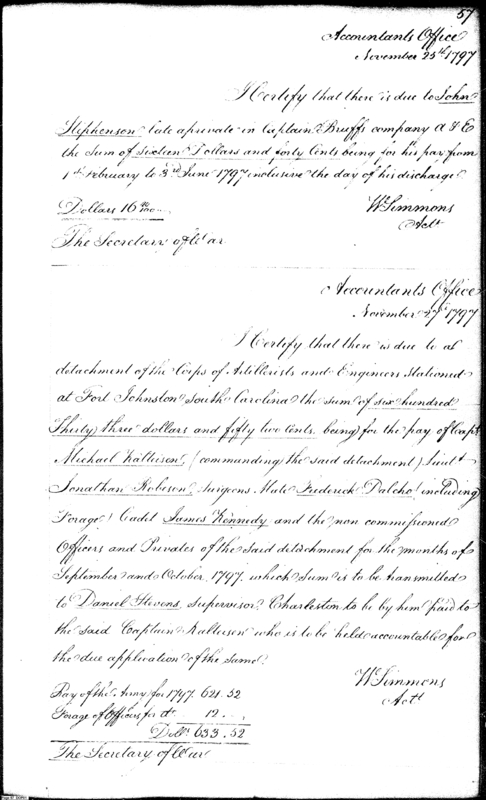 57
Accountants Office
November 25th 1797
I Certify that there is due to John
Stephenson late a private in Captain Bruffs company A & E
the Sum of sixteen Dollars and forty Cents being for his pay from
1st February to 3rd June 1797 inclusive the day of his discharge
Dollars 16 40/100
Wm Simmons
Actt
The Secretary of War
Accountants Office
November 27th 1797
I Certify that there is due to a
detachment of the Corps of Artillerists and Engineers Stationed
at Fort Johnston South Carolina the sum of six hundred
Thirty three dollars and fifty two Cents. being for the pay of Capt
Michael Kalteisen, (commanding the said detachment) Lieutt
Jonathan Robeson, Surgeons Mate Frederick Dalcho (including
Forage) Cadet James Kennedy and the non commissioned
Officers and Privates of the said detachment for the months of
September and October 1797. which sum is to be transmitted
to Daniel Stevens, Supervisor, Charleston to be by him paid to
the said Captain Kalteisen who is to be held accountable for
the due application of the same.
Wm Simmons
Actt
Pay of the Army for 1797. 621.52
Forage of Officers for do 12...
Dolls 633.52
The Secretary of War